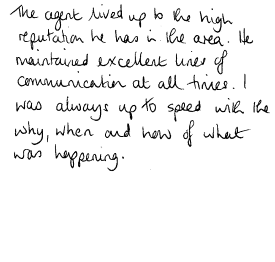 The agent lived up to the high
reputation he has in the area. He
maintained excellent lines of
communication at all times. I
was always up to speed with the
why, when and how of what
was happening.